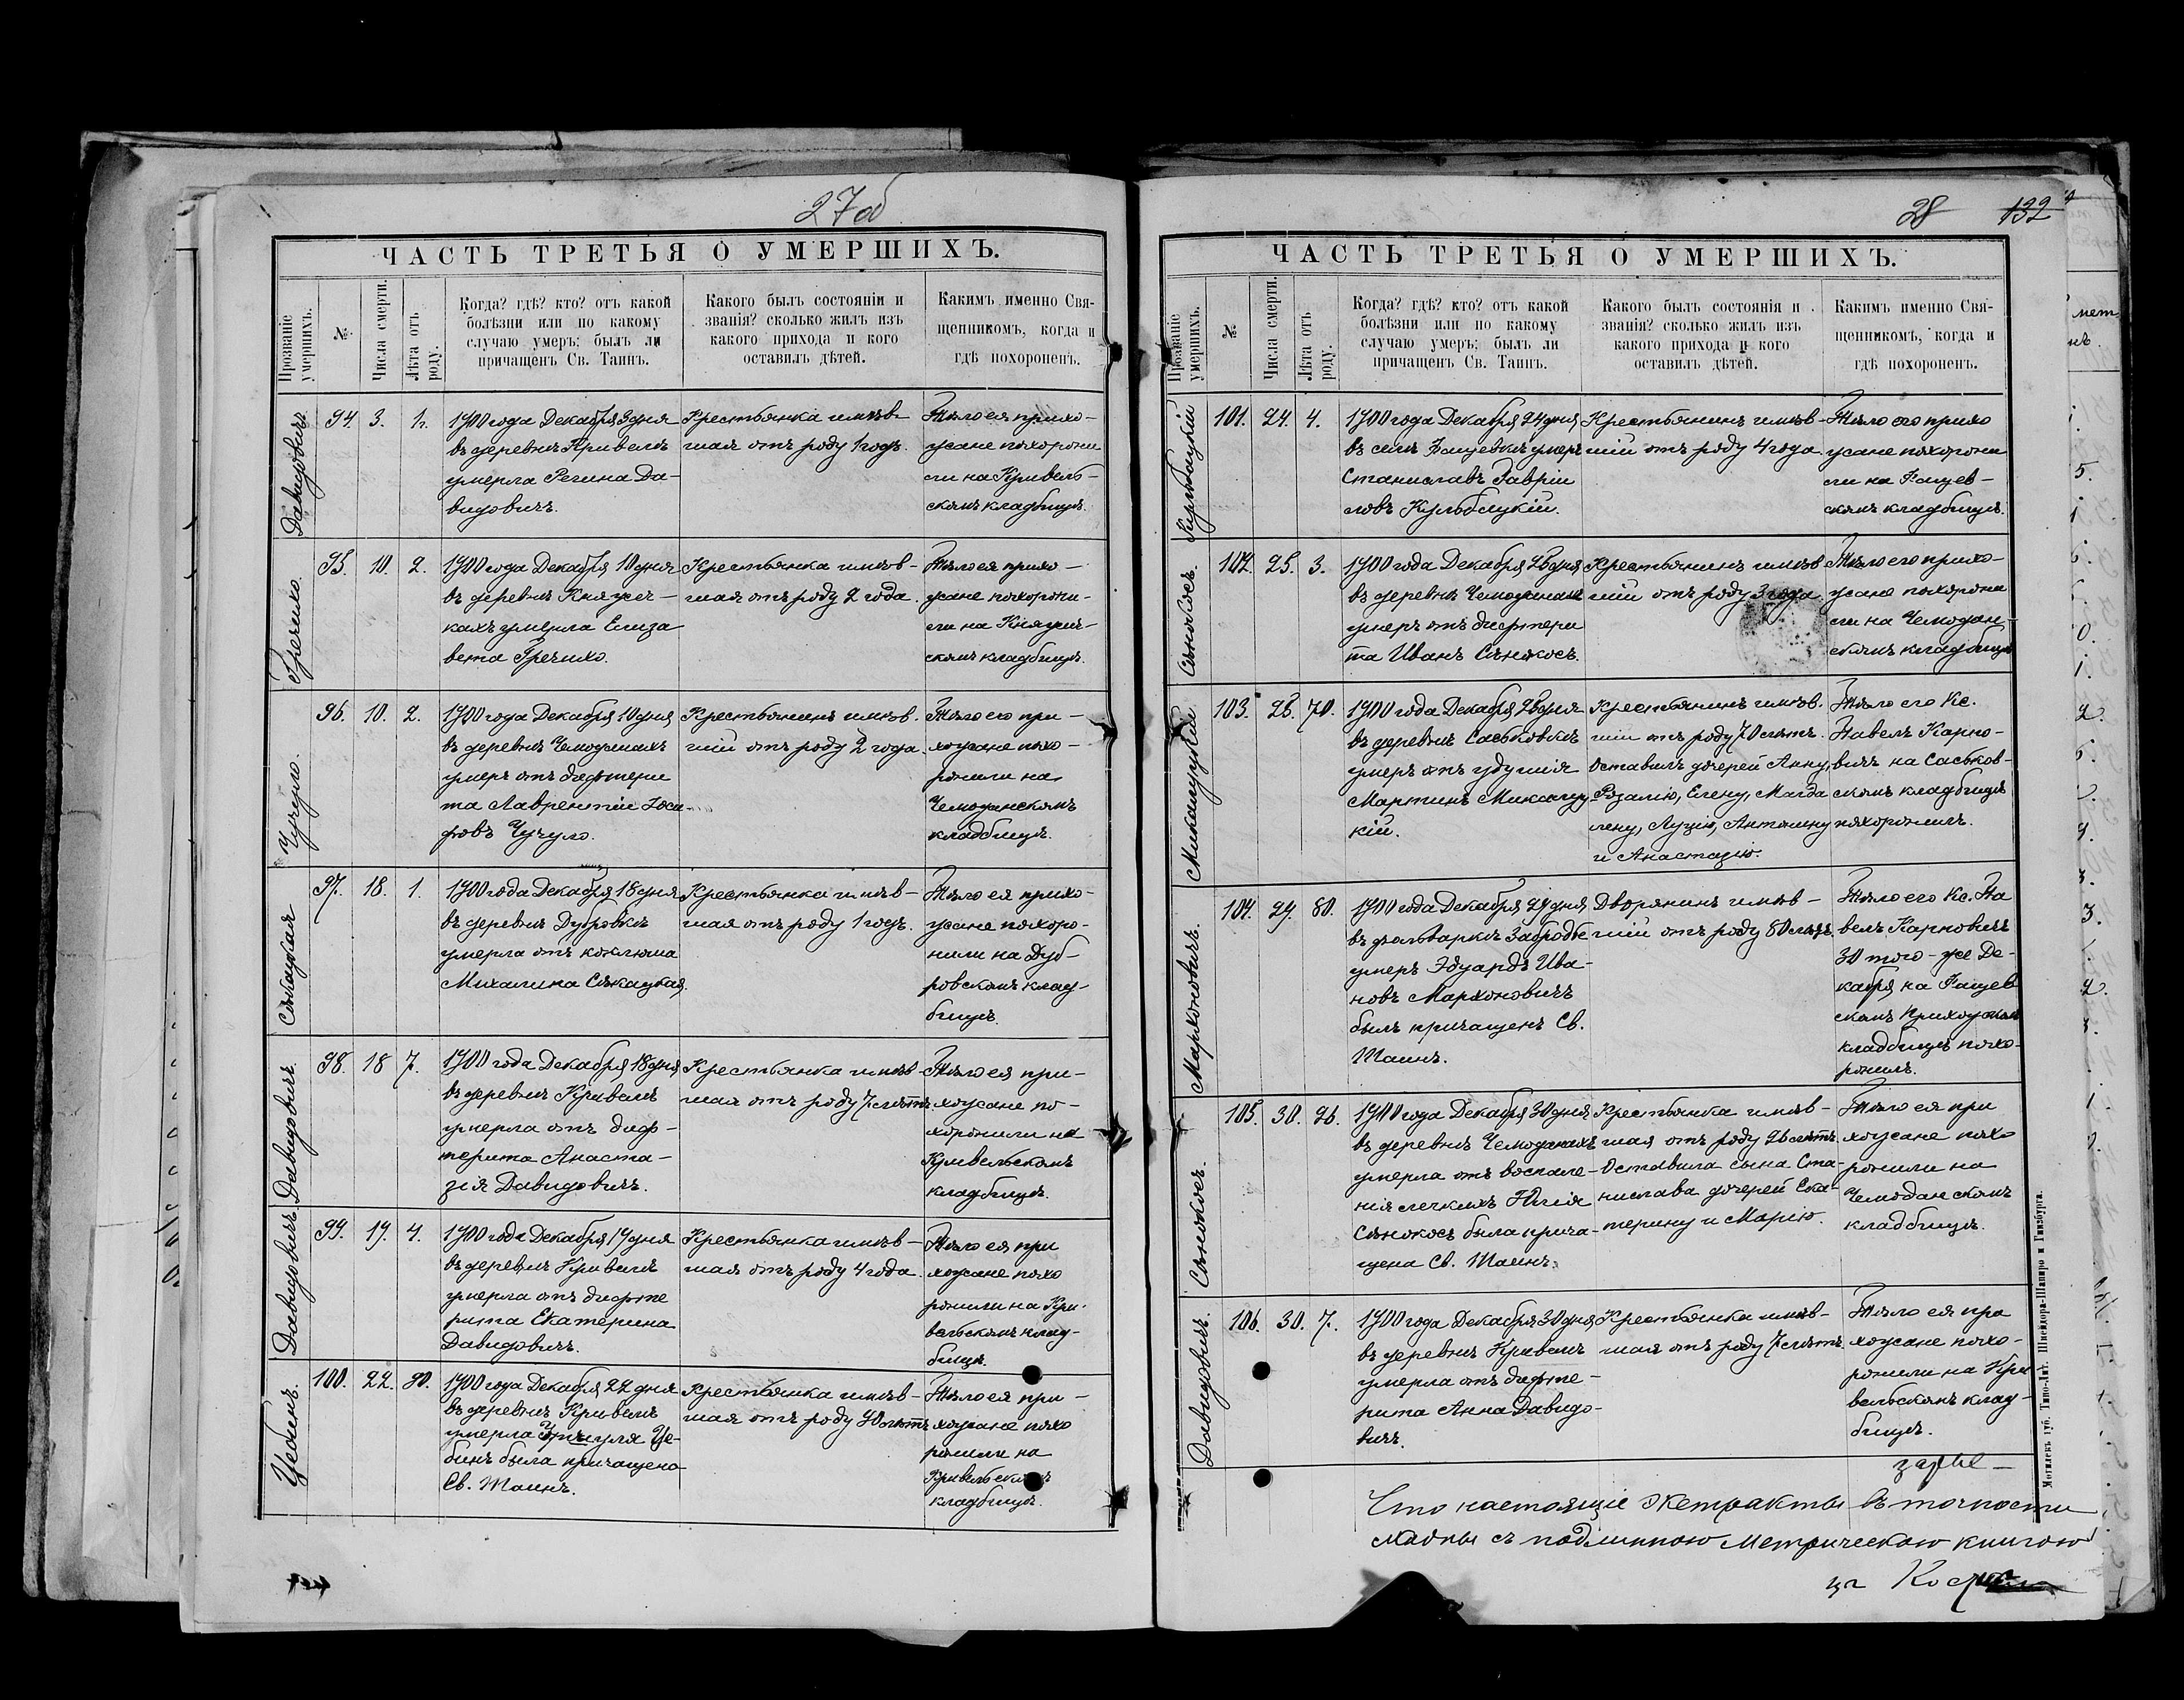 27об
ЧАСТЬ ТРЕТЬЯ О УМЕРШИХЪ.
Прозваніе умершихъ.
№
Числа смерти.
Лѣта отъ роду.
Когда? гдѣ? кто? отъ какой
болѣзни или по какому
случаю умеръ; былъ ли
причащенъ Св. Таинъ.
Какого былъ состоянія и
званія? сколько жилъ изъ
какого прихода и кого
оставилъ дѣтей.
Какимъ именно Свя-
щенникомъ, когда и
гдѣ похороненъ.
Давидовичъ
94. 3. 1.
1900 года Декабря 3 дня
въ деревнѣ Кривелѣ
умерла Регина Да-
видовичъ.
Крестьянка имѣв-
шая отъ роду 1 годъ.
Тѣло ея прихо-
жане похорони
ли на Кривель-
скомъ кладбищѣ.
Гречихо.
95. 10. 2.
1900 года Декабря 10 дня
въ деревнѣ Княжи-
кахъ умерла Елиза
вета Гречихо.
Крестьянка имѣв-
шая отъ роду 2 года.
Тѣло ея прихо-
жане похорони-
ли на Княжи-
скомъ кладбищѣ.
Чучуло.
96. 10. 2.
1900 года Декабря 10 дня
въ деревнѣ Чемоданахъ
умеръ отъ дифтери
та Лаврентій Іоси-
фовъ Чучуло.
Крестьянинъ имѣв-
шій отъ роду 2 года.
Тѣло его при-
хожане похо-
ронили на
Чемоданскомъ
кладбищѣ.
Сѣкацкая
97. 18. 1.
1900 года Декабря 18 дня
въ деревнѣ Дубровкѣ
умерла отъ коклюша
Михалина Сѣкацкая.
Крестьянка имѣв-
шая отъ роду 1 годъ.
Тѣло ея прихо-
жане похоро-
нили на Дуб-
ровскомъ клад-
бищѣ.
Давидовичъ.
98. 18 7.
1900 года Декабря 18 дня
въ деревнѣ Кривелѣ
умерла отъ диф-
терита Анаста-
зія Давидовичъ.
Крестьянка имѣв-
шая отъ роду 7 лѣтъ.
Тѣло ея при-
хожане по-
хоронили на
Кривельскомъ
кладбищѣ.
Давидовичъ
99. 19. 4.
1900 года Декабря 19 дня
въ деревнѣ Кривелѣ
умерла отъ дифте
рита Екатерина
Давидовичъ.
Крестьянка имѣв-
шая отъ роду 4 года.
Тѣло ея при
хожане похо
ронили на Кри-
вельскомъ клад-
бищѣ.
Цебинъ.
100. 22. 90.
1900 года Декабря 22 дня
въ деревнѣ Кривелѣ
умерла Це-
бинъ была причащена
Св. Таинъ.
Крестьянка имѣв-
шая отъ роду 90 лѣтъ.
Тѣло ея при-
хожане похо
ронили на
Кривельскомъ
кладбищѣ.
28 132
ЧАСТЬ ТРЕТЬЯ О УМЕРШИХЪ.
Прозваніе умершихъ.
№
Числа смерти.
Лѣта отъ роду.
Когда? гдѣ? кто? отъ какой
болѣзни или по какому
случаю умеръ; былъ ли
причащенъ Св. Таинъ.
Какого былъ состоянія и
званія? сколько жилъ изъ
какого прихода и кого
оставилъ дѣтей.
Какимъ именно Свя-
щенникомъ, когда и
гдѣ похороненъ.
101. 24. 4.
1900 года Декабря 24 дня
въ селѣ Фащевкѣ умеръ
Станиславъ Гавріи
ловъ Кульбацкій.
Крестьянинъ имѣв-
шій отъ роду 4 года
Тѣло его прихо
жане похорони
ли на Фащев-
скомъ кладбищѣ.
Сѣнокосъ.
102. 25. 3.
1900 года Декабря 25 дня
въ деревнѣ Чемоданахъ
умеръ отъ дифтери
та Иванъ Сѣнокосъ.
Крестьянинъ имѣв
шій отъ роду 3 года.
Тѣло его прихо-
жане похорони
ли на Чемодан-
скомъ кладбищѣ
Микалуцкій
103. 26. 70.
1900 года Декабря 26 дня
въ деревнѣ Саськовкѣ
умеръ отъ удушія
Мартинъ Микалуц-
кій.
Крестьянинъ имѣв-
шій отъ роду 70 лѣтъ.
Оставилъ дочерей Анну,
Розалію, Елену, Магда
лену, Луцію, Антонину
и Анастазію.
Тѣло его Кс.
Павелъ Карпо-
вичъ на Саськов-
скомъ кладбищѣ
похоронилъ.
Марконовичъ.
104. 29. 80.
1900 года Декабря 29 дня
въ фольваркѣ Забродье
умеръ Эдуардъ Ива-
новъ Мархоновичъ
былъ причащенъ Св.
Таинъ.
Дворянинъ имѣв-
шій отъ роду 80 лѣтъ.
Тѣло его Кс. Па
велъ Карповичъ
30 того-же Де-
кабря на Фащев
скомъ Приходскомъ
кладбищѣ похо-
ронилъ.
Сѣнокосъ.
105. 30. 26.
1900 года Декабря 30 дня
въ деревнѣ Чемоданахъ
умерла отъ воспале-
нія легкихъ Юлія
Сѣнокосъ была прича-
щена Св. Таинъ.
Крестьянка имѣв-
шая отъ роду 26 лѣтъ.
Оставила сына Ста-
нислава дочерей Ека-
терину и Марію.
Тѣло ея при
хожане похо
ронили на
Чемоданскомъ
кладбищѣ.
Давидовичъ.
106. 30. 7.
1900 года Декабря 30 дня
въ деревнѣ Кривелѣ
умерла отъ дифте-
рита Анна Давидо-
вичъ.
Крестьянка имѣв-
шая отъ роду 7 лѣтъ.
Тѣло ея при
хожане похо-
ронили на Кри
вельскомъ клад-
бищѣ.
Что настоящіе экстракты въ точности
сходны съ подлинною Метрическою книгою
Могилевъ губ. Типо-Лит. Шнейдора-Шапиро и Гинзбурга.